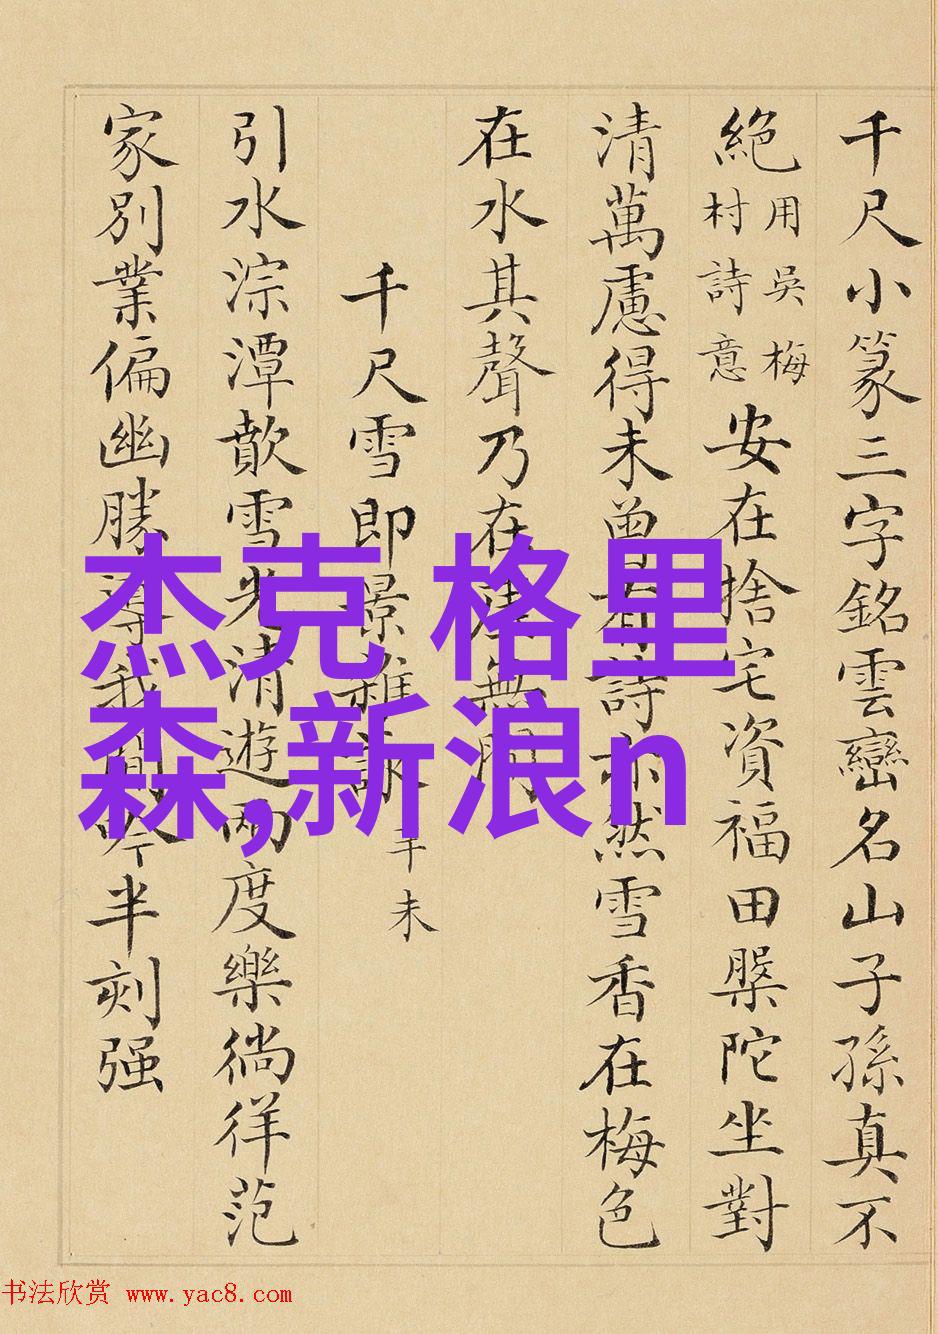 千尺小篆三字銘雲巒名山子孫真不
絕用吳梅村詩意安在捨宅資福田槃陀坐對
清萬慮得未曾有詩亦然雪香在梅色
在水其聲乃在無
千尺雪即景雜詠辛未
引水淙潭歕雪光清遊兩度樂徜徉范
家別業偏幽勝我半刻强
杰克 格里
森,新浪n
书法欣赏 www.yac8.com